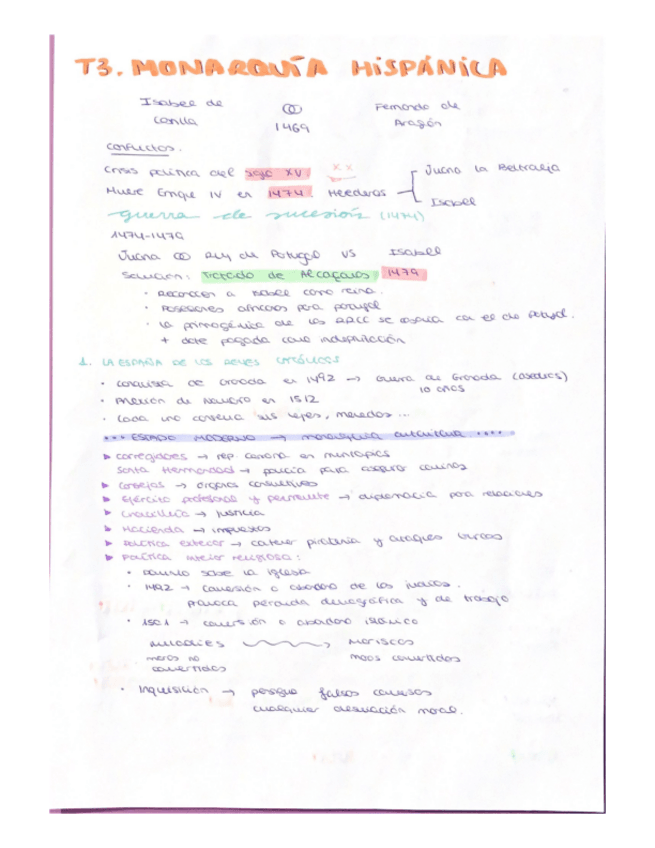 T3. MONARQUÍA HISPÁNICA
Isabel de Castilla ⚭ 1469 Fernando de Aragón
Conflictos.
Crisis política del siglo XV. XX
Muere Enrique IV en 1474. Herederos
Juana la Beltraneja
Isabel
guerra de sucesión (1474)
1474-1479
Juana ⚭ Rey de Portugal VS Isabel
Solución: Tratado de Alcaçovas, 1479
· Reconocen a Isabel como reina.
· Posesiones africanas para portugal
· la primogénita de los RRCC se casaría con el de Portugal.
+ dote pagada como indemnización
1. LA ESPAÑA DE LOS REYES CATÓLICOS
· conquista de Granada en 1492 → Guerra de Granada (asedios)
10 años
· Anexión de Navarra en 1512
· Cada uno conserva sus leyes, monedas ...
ESTADO MODERNO → monarquía autoritaria
▸ corregidores → rep. corona en municipios
Santa Hermandad → policía para asegurar caminos
▸ Consejos → órganos consultivos
▸ Ejército profesional y permanente → diplomacia para relaciones
▸ Chancillería → justicia
▸ Hacienda → impuestos
▸ Política exterior → contener piratería y ataques turcos
▸ Política interior religiosa:
· Dominio sobre la Iglesia
· 1492 → conversión o abandono de los judíos.
provoca pérdida demográfica y de trabajo
· 1501 → conversión o abandono islámico
mudéjares → moriscos
moros no convertidos
moros convertidos
· Inquisición → persigue falsos conversos
cualquier desviación moral.